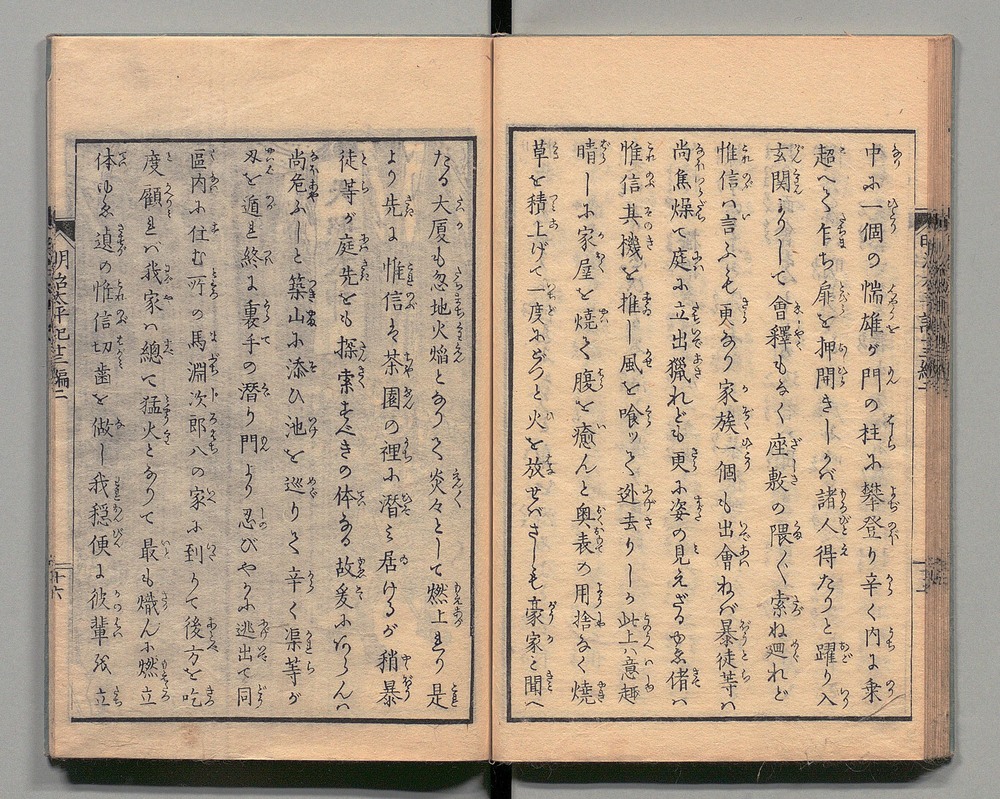 中に一個の惴雄が門の柱に攀登り辛く内に乗
超へて乍ち扉を押開きしかバ諸人得たりと躍り入
玄関よりして會釋もなく座敷の隈ぐ索ね廻れど
惟信ハ言ふも更なり家族一個も出會ねバ暴徒等ハ
尚焦燥て庭に立出獵れども更に姿の見えざるゆゑ偖ハ
惟信其機を推し風を喰ッて迯去りしか此上ハ意趣
晴しに家屋を焼て腹を癒んと奥表の用捨なく焼
草を積上げて一度にどつと火を放せバさしも豪家と聞へ
たる大厦も忽地火焔となりて炎々として燃上れり是
より先に惟信は茶園の裡に潜み居けるが稍暴
徒等が庭先をも探索すべきの体なる故爰にあらんハ
尚危ふしと築山に添ひ池を巡りて辛く渠等が
刄を遁れ終に裏手の潜り門より忍びやかに逃出て同
區内に住む所の馬淵次郎八の家に到りて後方を吃
度顧れバ我家ハ總て猛火となりて最も熾んに燃立
体ゆゑ遉の惟信切歯を做し我穏便に彼輩が立
明治太平記十三編二
十六